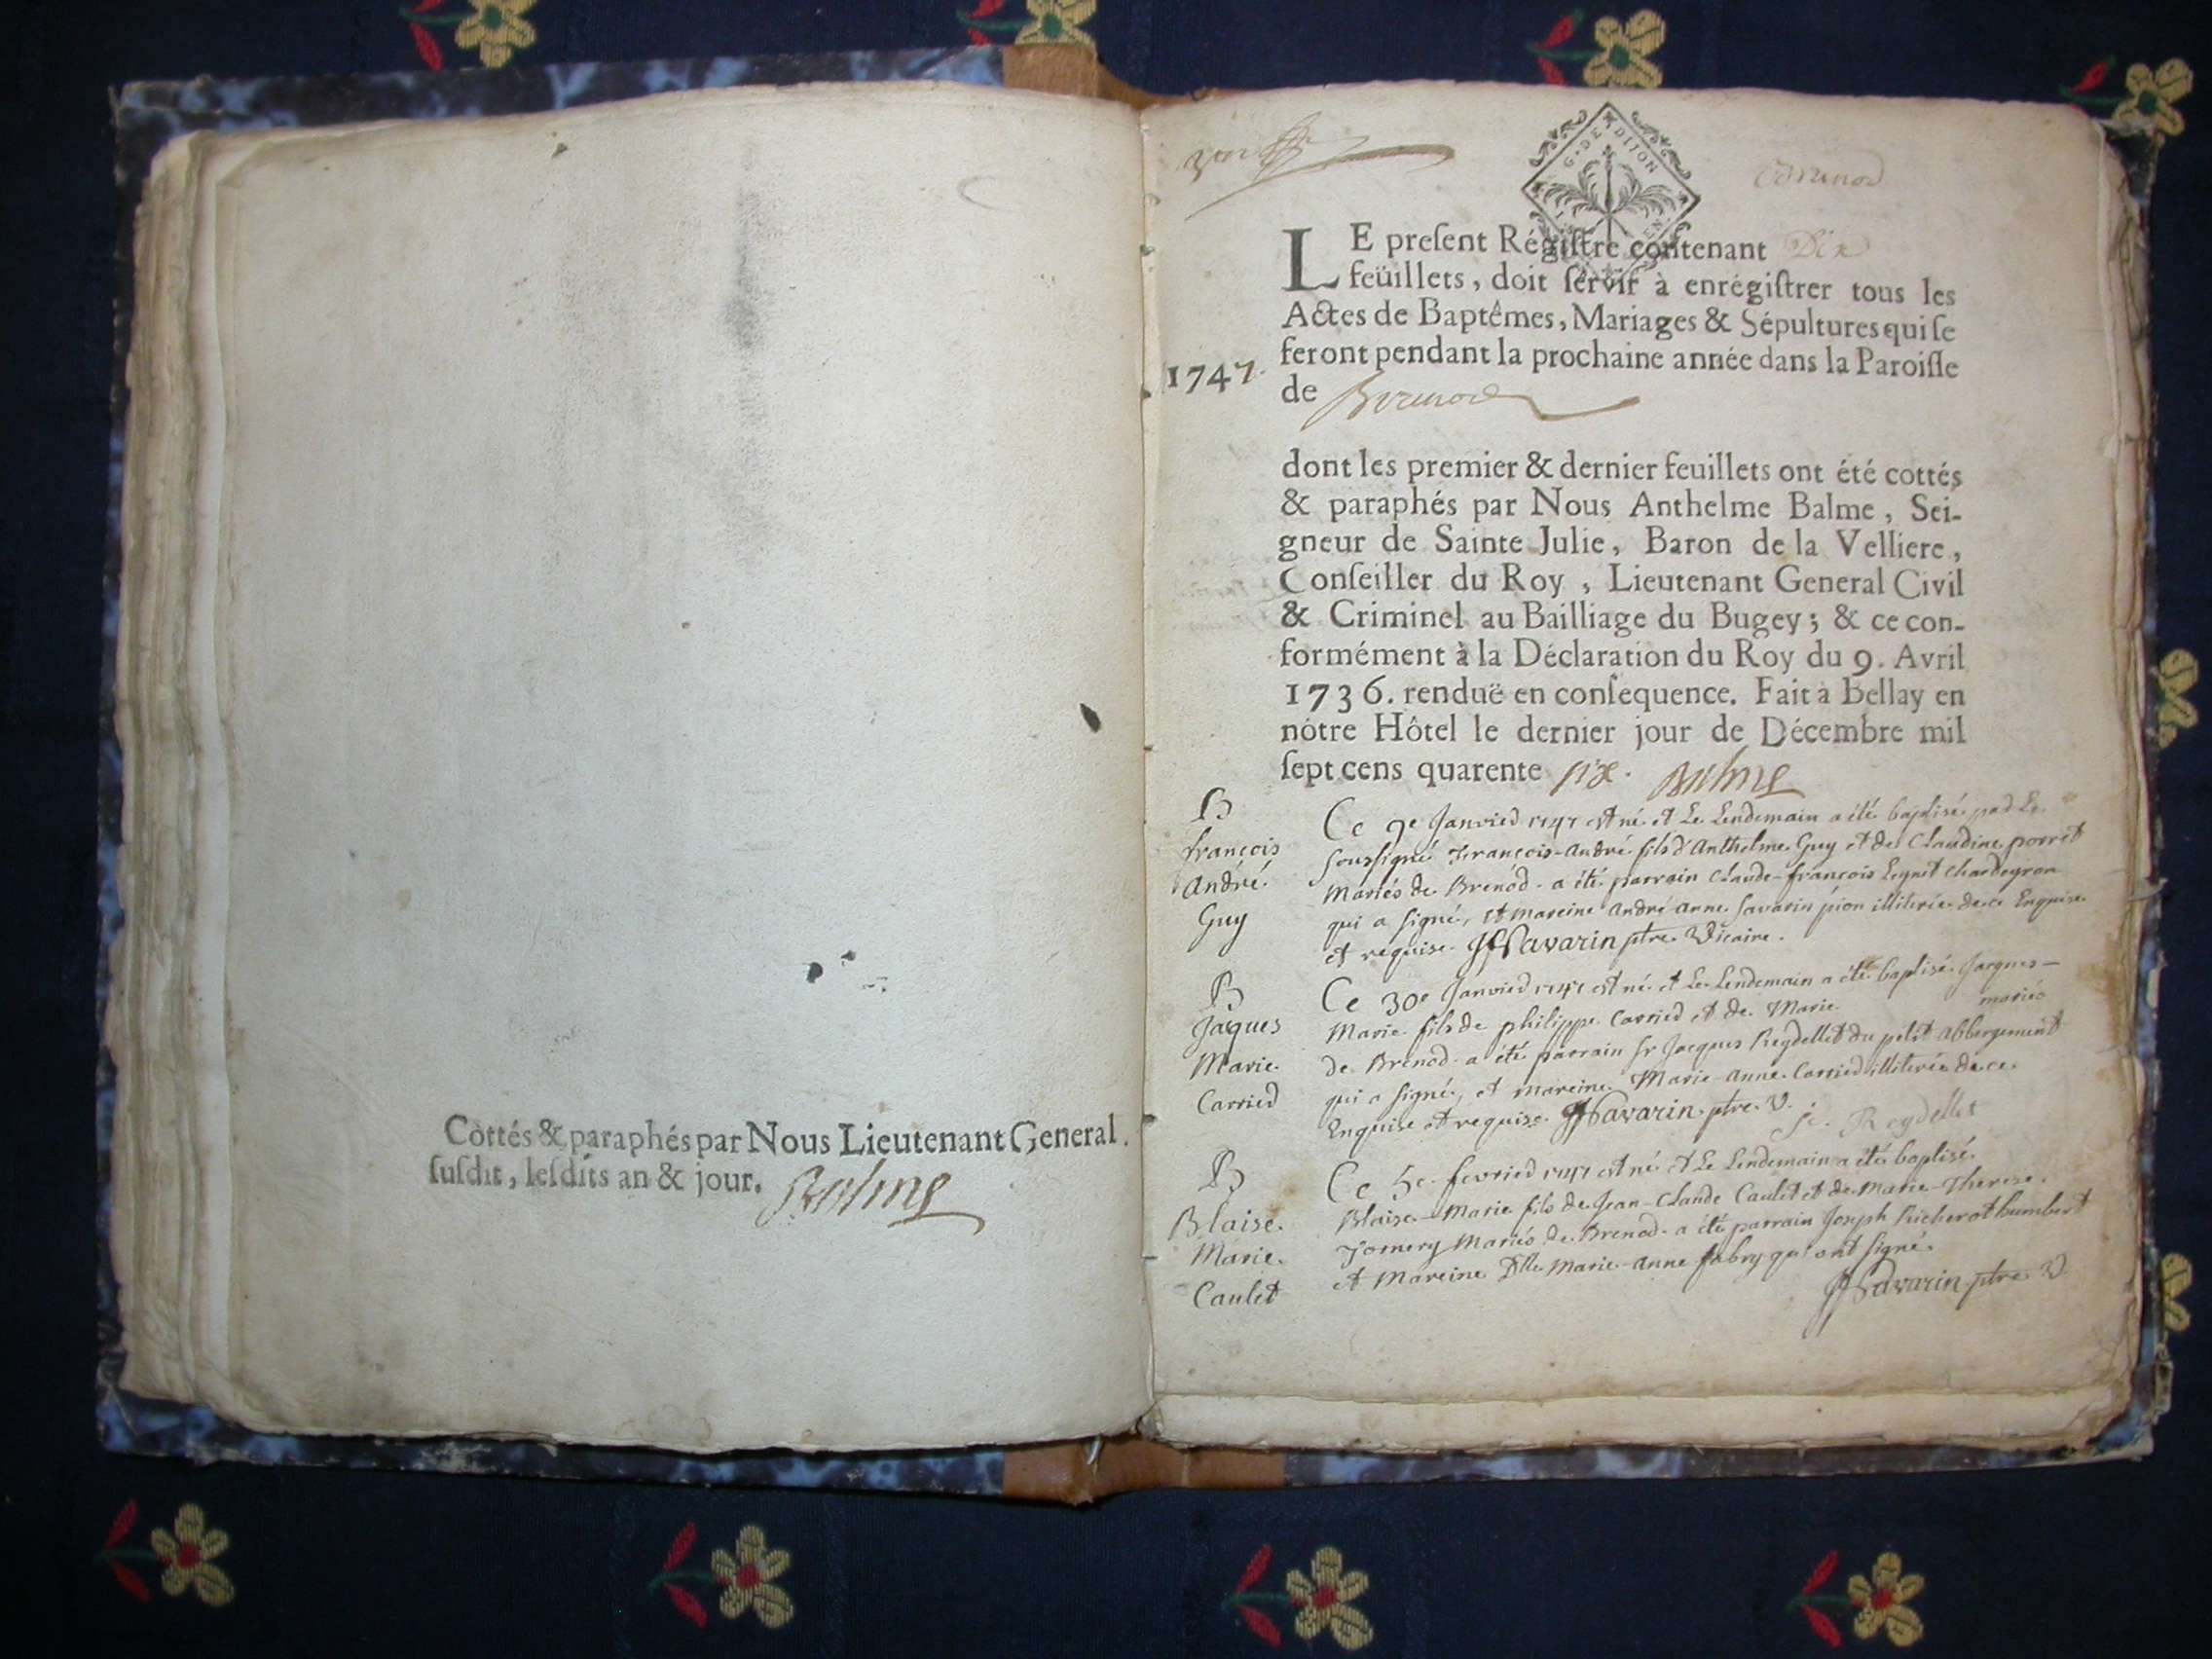 Cottés & paraphés par Nous Lieutenant General
ſuſdit, leſdits an & jour. Balme
G. DE DIJON
LE preſent Régiſtre contenant Dix
feüillets, doit ſervir à enrégiſtrer tous les
Actes de Baptêmes, Mariages & Sépultures qui ſe
feront pendant la prochaine année dans la Paroiſſe
1747.
de Brenod
dont les premier & dernier feuillets ont été cottés
& paraphés par Nous Anthelme Balme, Sei-
gneur de Sainte Julie, Baron de la Velliere,
Conſeiller du Roy, Lieutenant General Civil
& Criminel au Bailliage du Bugey; & ce con-
formément à la Déclaration du Roy du 9. Avril
1736. renduë en conſequence. Fait à Bellay en
nôtre Hôtel le dernier jour de Décembre mil
ſept cens quarente six. Balme
B
françois
André
Guy
Ce 9e Janvier 1747 est né et Le Lendemain a été baptisé par Le
Soussigné François-André fils d'Anthelme Guy et de Claudine porret
Mariés de Brenod. a été parrain Claude-françois
qui a signé, et mareine André-Anne Savarin illiterée de ce Enquise
et requise. Savarin ptre Vicaire.
B
Jaques
Marie
Carrier
Ce 30e Janvier 1747 est né et Le Lendemain a été baptisé Jacques-
Marie fils de philippe Carrier et de Marie mariés
de Brenod. a été parrain Sr Jacques Reydellet du petit Abbergement
qui a signé, et mareine Marie-Anne Carrier illiterée de ce
Enquise et requise. Savarin ptre V. Reydellet
B
Blaise
Marie
Caulet
Ce 5e fevrier 1747 est né et Le Lendemain a été baptisé
Blaise-Marie fils de Jean-Claude Caulet et de Marie-Therese
Mariés de Brenod. a été parrain Joseph Richerot humbert
et Mareine Dlle Marie-Anne fabry qui ont signé.
Savarin ptre V.